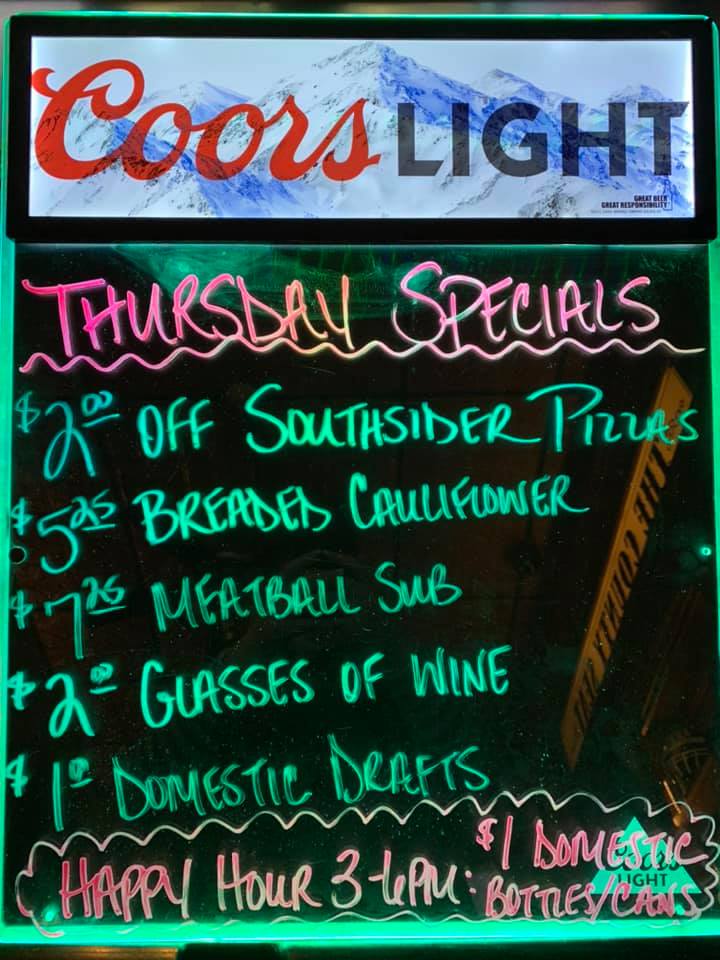 Coors LIGHT
GREAT BEER
GREAT RESPONSIBILITY
THURSDAY SPECIALS
$2.00 OFF SOUTHSIDER PIZZAS
$5.25 BREADED CAULIFLOWER
$7.25 MEATBALL SUB
$2.00 GLASSES OF WINE
$1.00 DOMESTIC DRAFTS
HAPPY HOUR 3-6PM: $1 DOMESTIC
BOTTLES/CANS
Coors
LIGHT